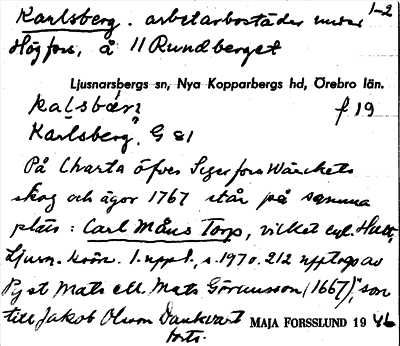 Karlsberg. arbetarbostäder under 1-2
Högfors, å 11 Rundberget
Ljusnarsbergs sn, Nya Kopparbergs hd, Örebro län.
kalsbärj f 19
Karlsberg, G 81
På Charta öfver Segerfors Wärckets
skog och ägor 1767 står på samma
plats: Carl Måns Torp, vilket enl. Hult,
Ljusn. krön. 1. uppl., s. 197 o. 212 upptogs av
Mats ell. Mats Göransson (1667), son
till Jakob Olsson Dankvart
MAJA FORSSLUND 1946
forts.